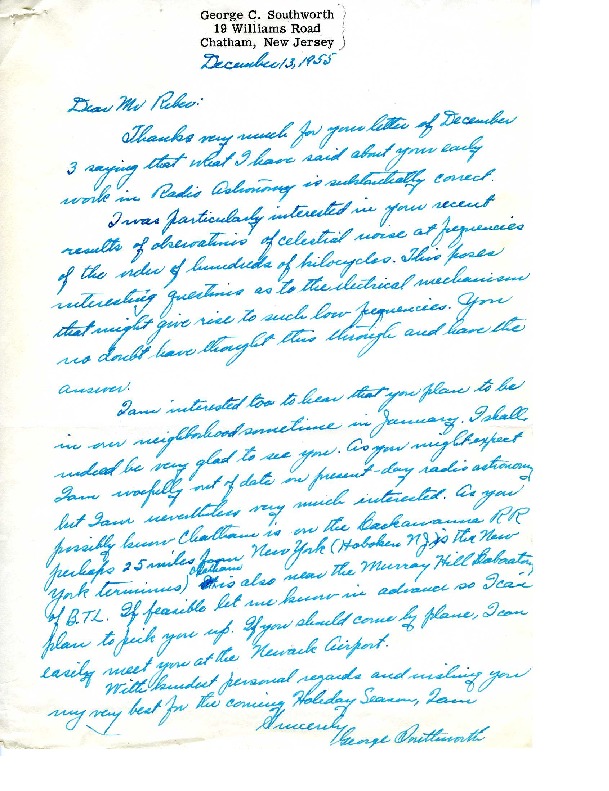 George C. Southworth
19 Williams Road
Chatham, New Jersey
December 13, 1955
Dear Mr Reber:
Thanks very much for your letter of December
3 saying that what I have said about your early
work in Radio Astronomy is substantially correct.
I was particularly interested in your recent
results of observations of celestial noise at frequencies
of the order of hundreds of kilocycles. This poses
interesting questions as to the electrical mechanism
that might give rise to such low frequencies. You
no doubt have thought this through and have the
answer.
I am interested too to hear that you plan to be
in our neighborhood sometime in January. I shall
indeed be very glad to see you. As you might expect
I am woefully out of date on present-day radio astronomy
but I am nevertheless very much interested. As you
possibly know Chatham is on the Lackawanna RR
perhaps 25 miles from New York (Hoboken NJ is the New
York terminus) Chatham is also near the Murray Hill Laboratory
of BTL. If feasible let me know in advance so I can
plan to pick you up. If you should come by plane, I can
easily meet you at the Newark Airport.
With kindest personal regards and wishing you
my very best for the coming Holiday Season, I am
Sincerely
George Southworth